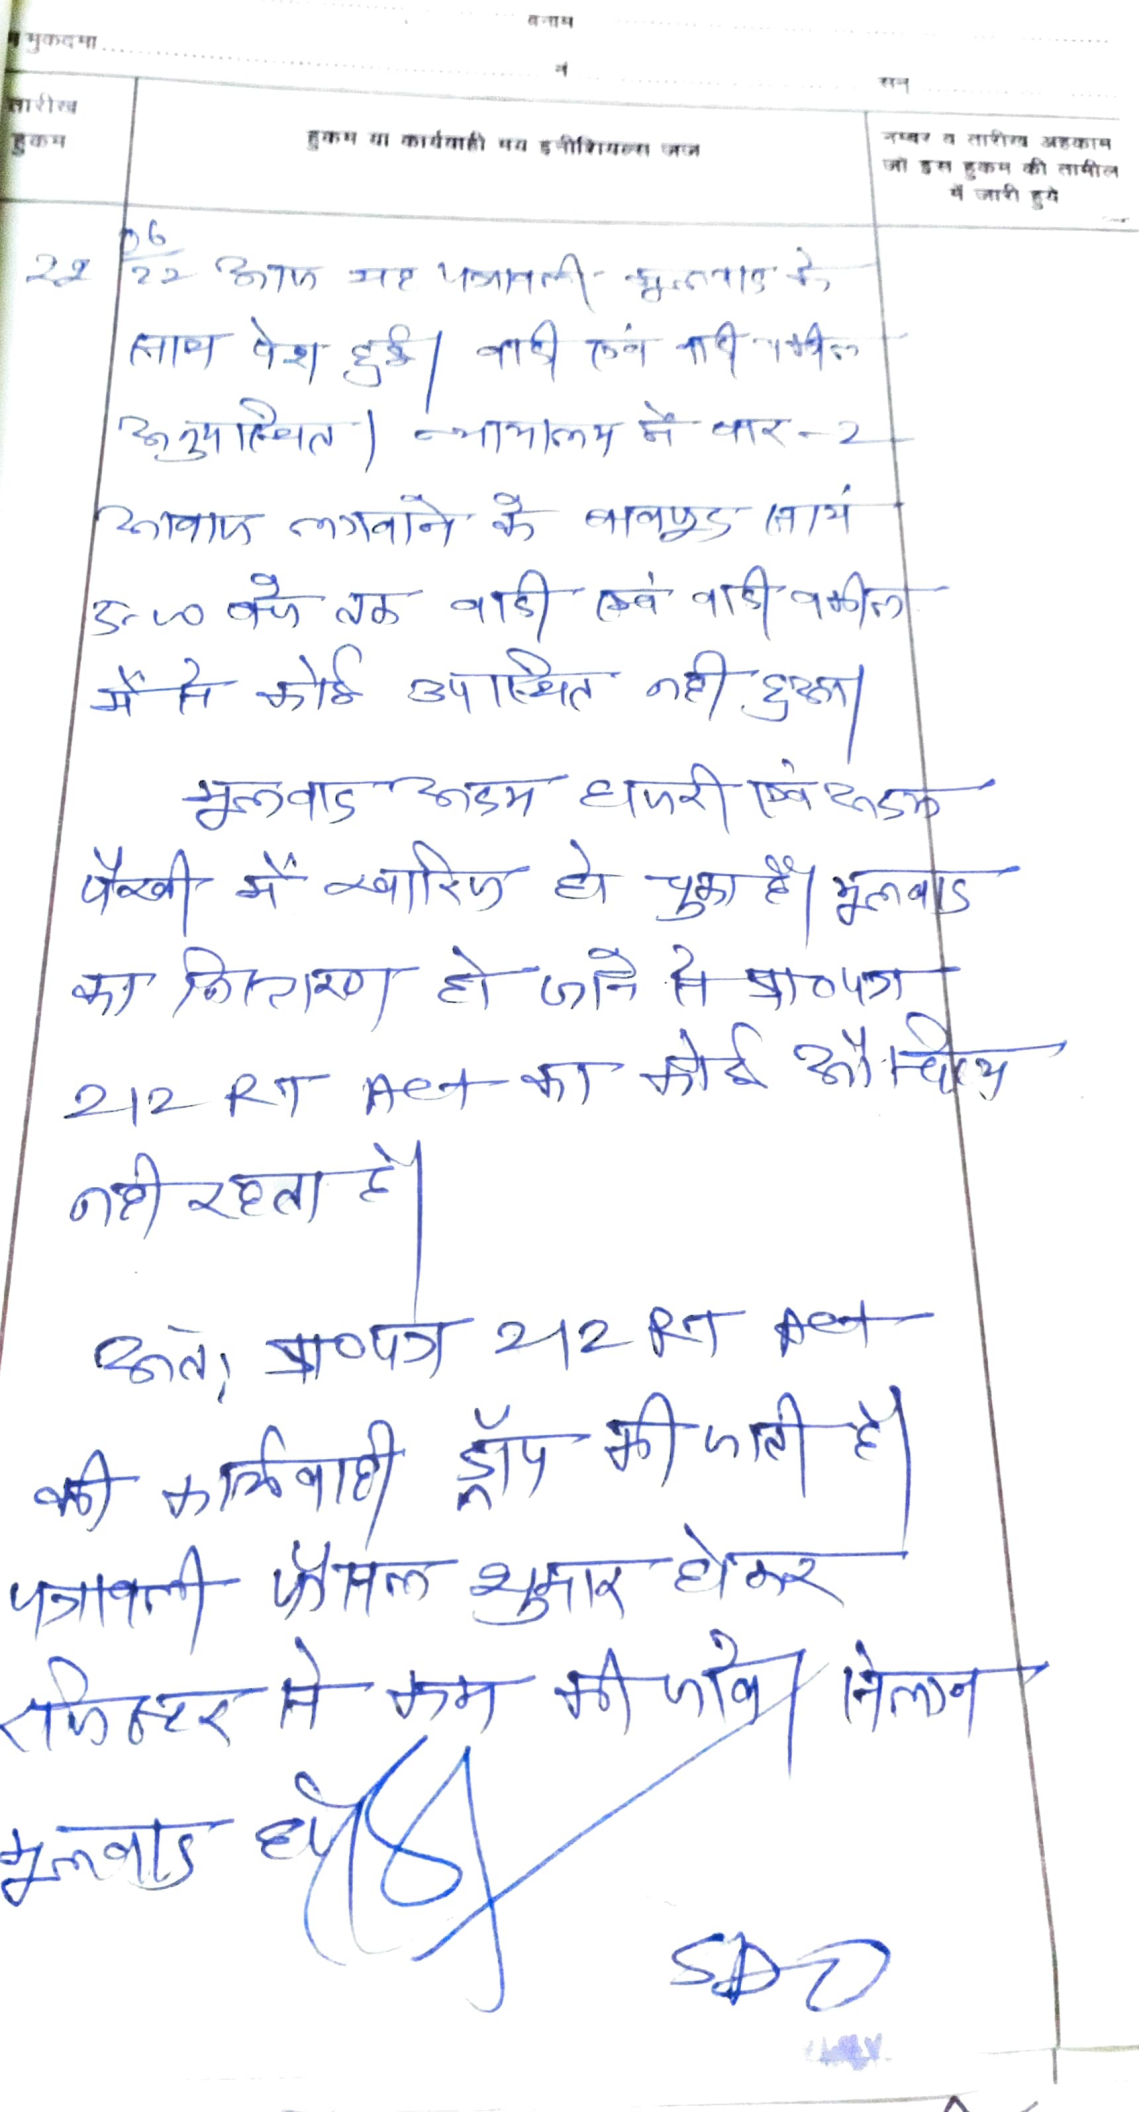 बनाम
मुकदमा
नं सन्
तारीख हुकम
हुकम या कार्यवाही मय इनीशियल्स जज
नम्बर व तारीख अहकाम
जो इस हुकम की तामील
में जारी हुये
06
22 22 आज यह पत्रावली मूलवाद के
साथ पेश हुई। वादी एवं वादी वकील
अनुपस्थित। न्यायालय में बार-2
आवाज लगवाने के बावजूद सायं
5-00 बजे तक वादी एवं वादी वकील
में से कोई उपस्थित नही हुआ।
मूलवाद अदम हाजरी एवं अदम
पैरवी में खारिज हो चुका है। मूलवाद
का निस्तारण हो जाने से प्रा०पत्र
212 RT Act का कोई औचित्य
नही रहता है।
अतः प्रा०पत्र 212 RT Act
की कार्यवाही ड्रॉप की जाती है।
पत्रावली फैसल शुमार होकर
रजिस्टर से कम की जावे।
मूलवाद हो।
SDO